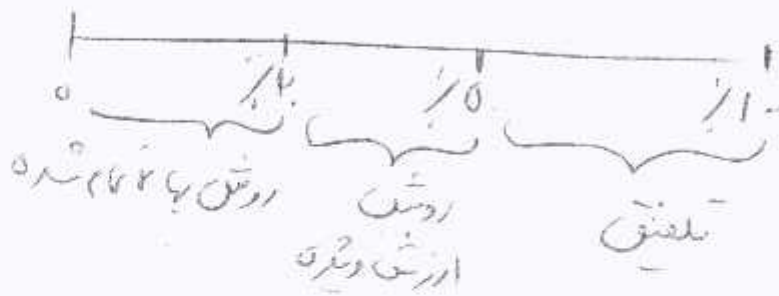 ۰ ٪۲۰ ٪۵۰ ٪۱۰۰
روش بهاء تمام شده
روش
ارزش ویژه
تلفیق